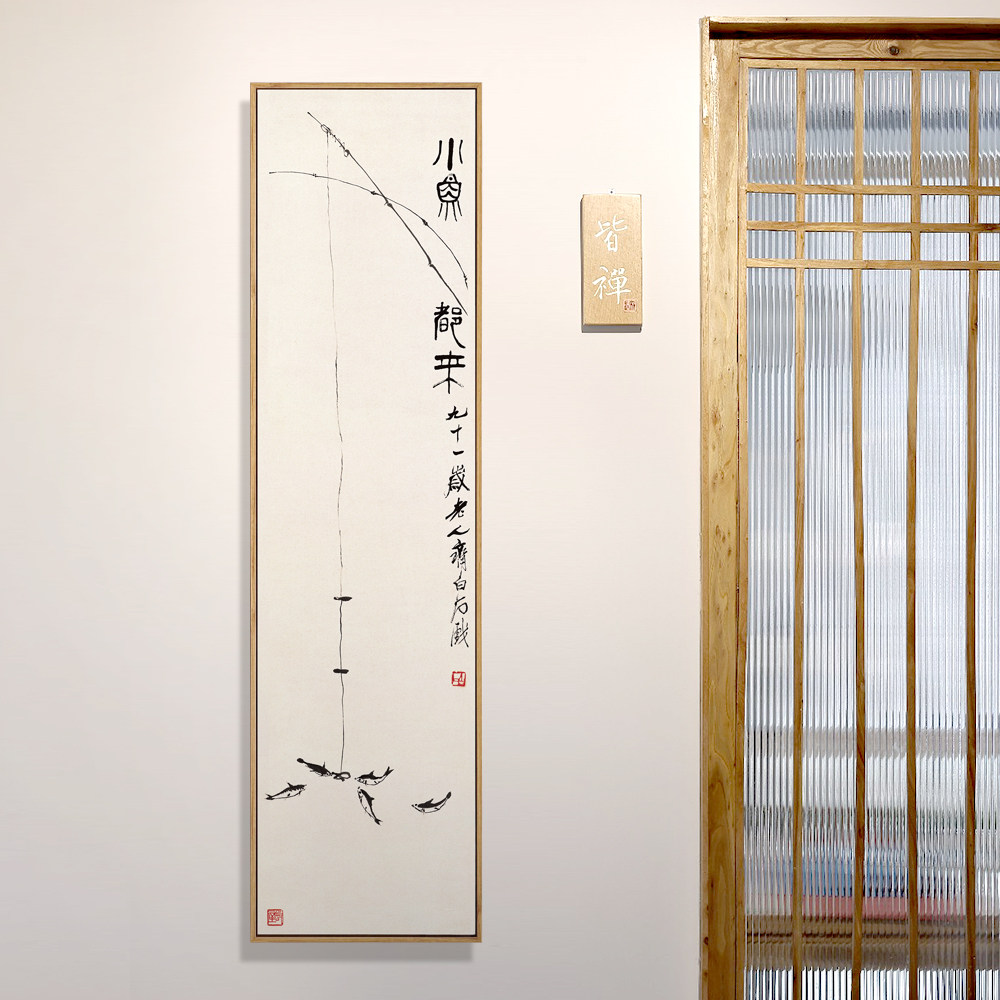 小魚都来
九十一歲老人齊白石戲
皆禪